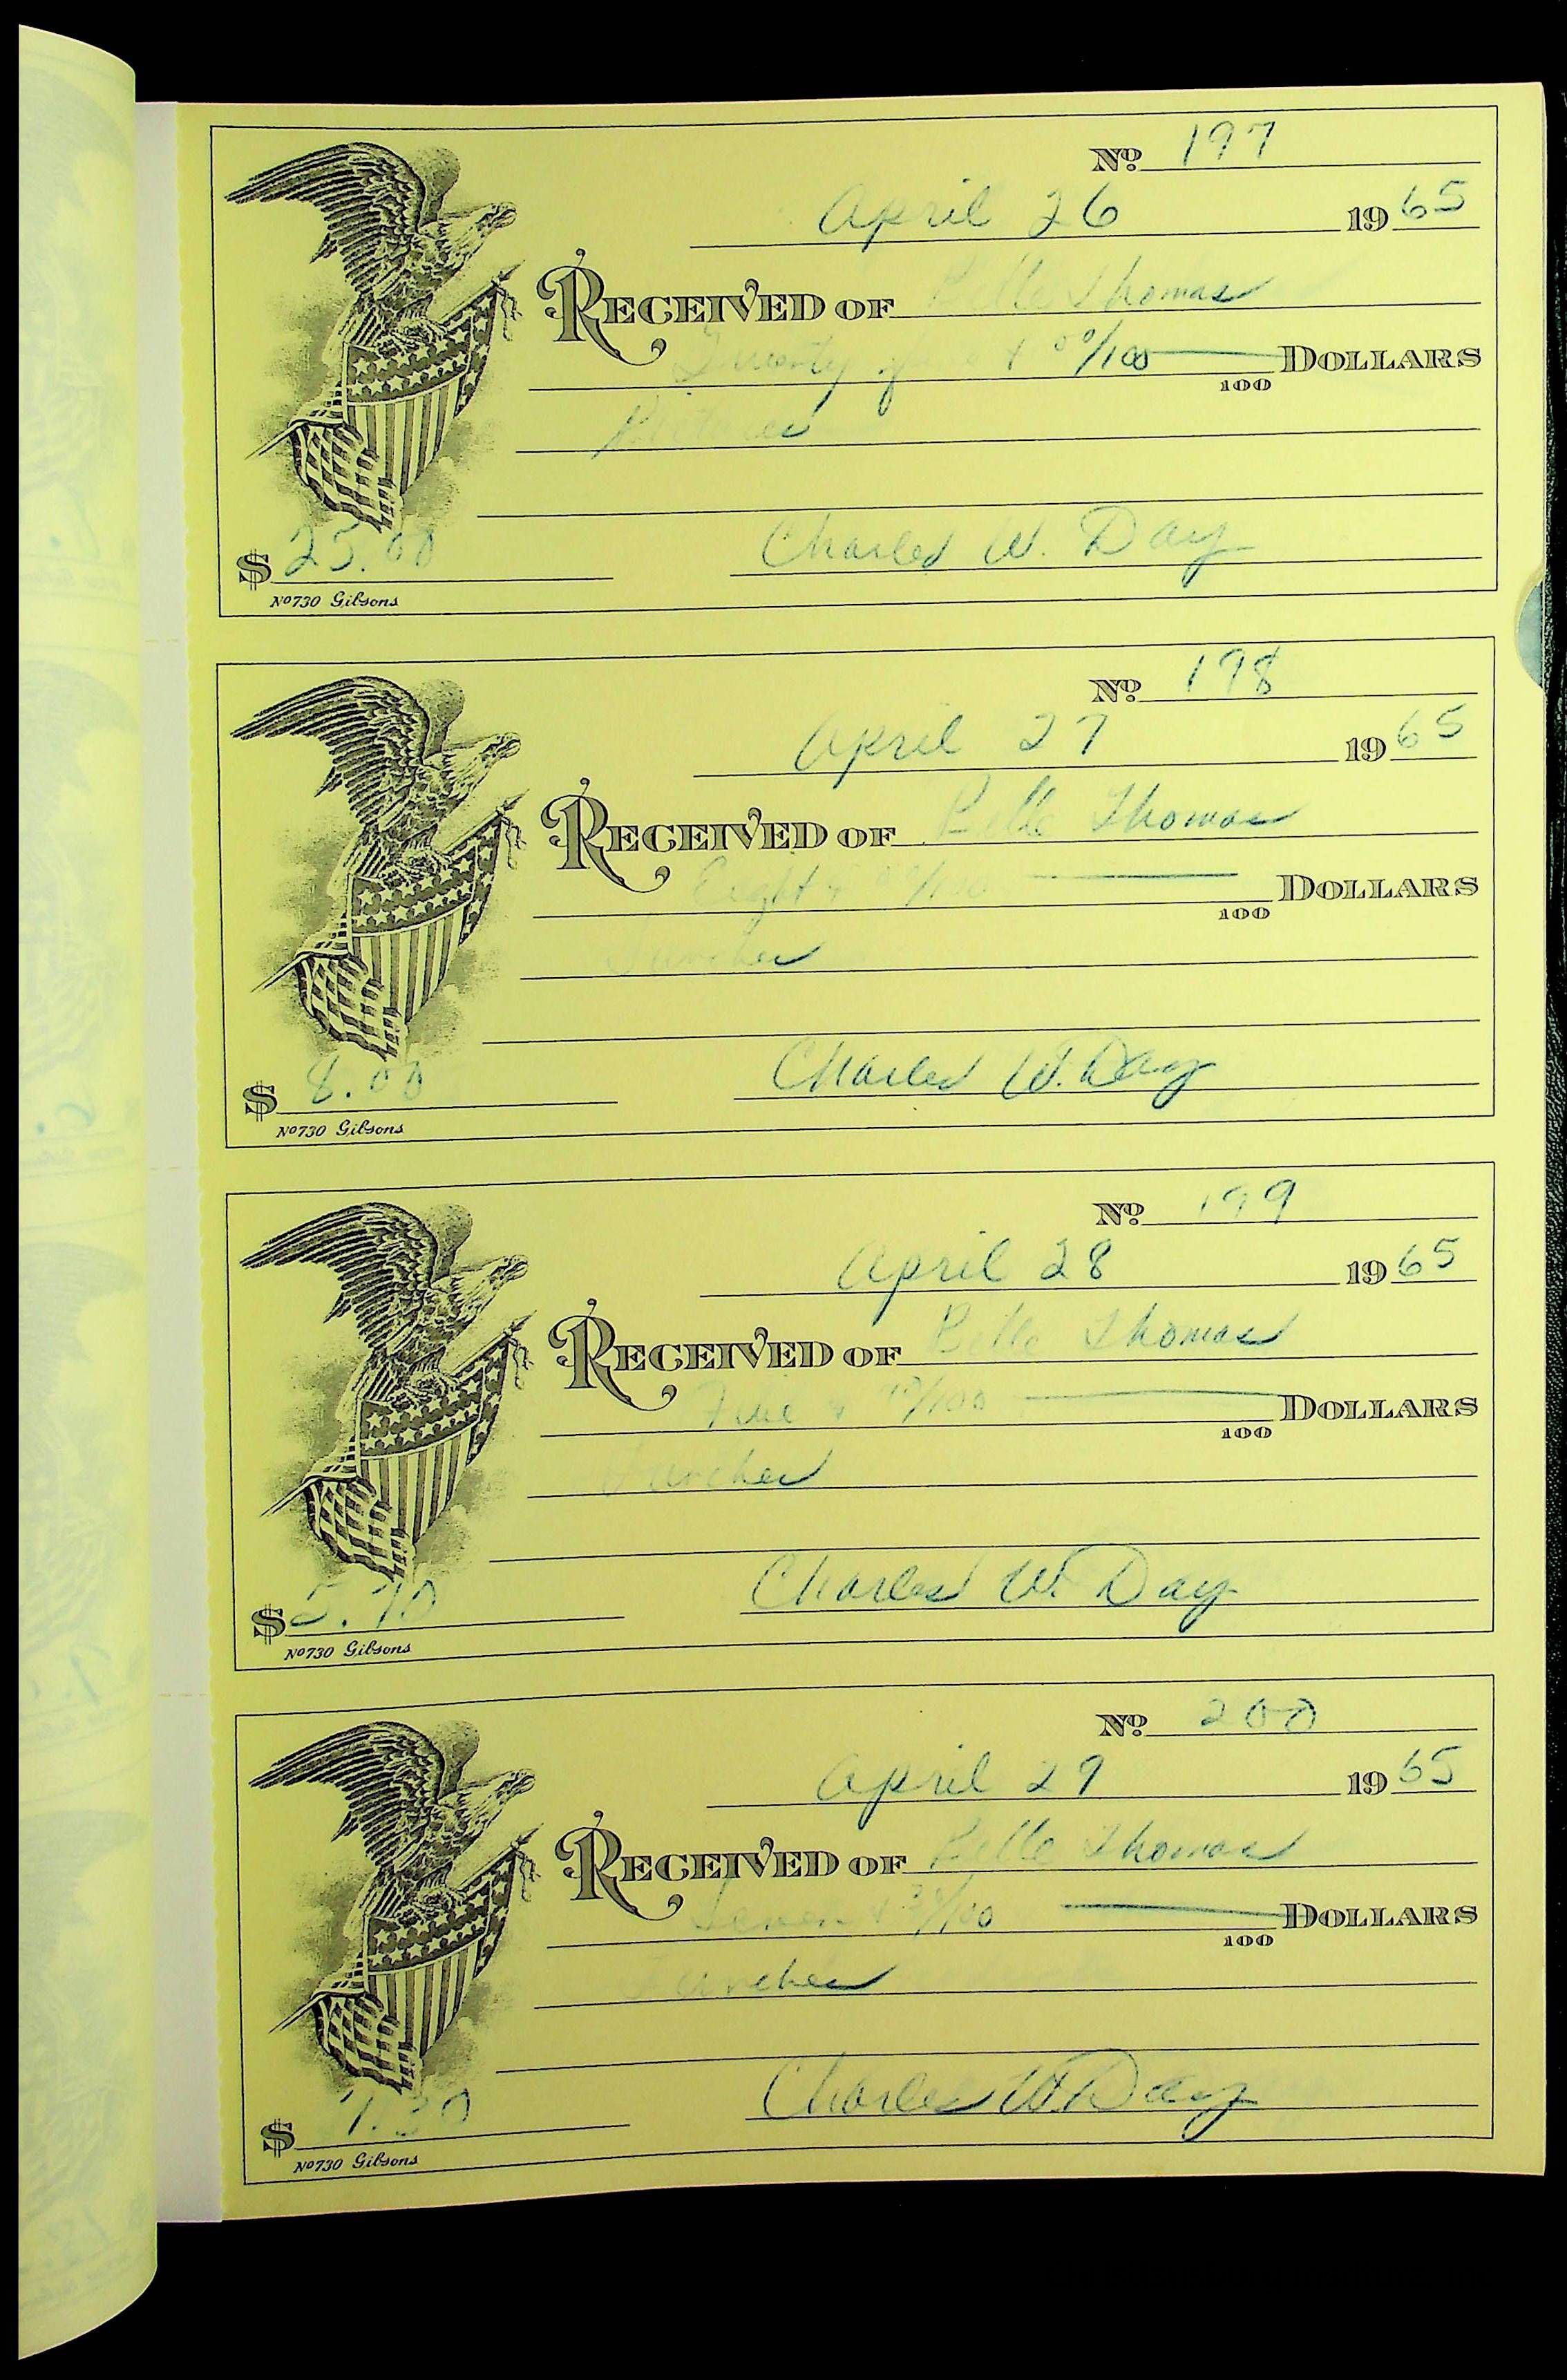 No. 197
April 26 1965
RECEIVED OF Belle Thomas
Twenty five & 00/100 DOLLARS
100
Pictures
$ 25.00 Charles W. Day
No 730 Gibsons
No. 198
April 27 1965
RECEIVED OF Belle Thomas
Eight & 00/100 DOLLARS
100
Lunches
$ 8.00 Charles W. Day
No 730 Gibsons
No. 199
April 28 1965
RECEIVED OF Belle Thomas
Five & 70/100 DOLLARS
100
Lunches
$ 5.70 Charles W. Day
No 730 Gibsons
No. 200
April 29 1965
RECEIVED OF Belle Thomas
Seven & 30/100 DOLLARS
100
Lunches
$ 7.30 Charles W. Day
No 730 Gibsons